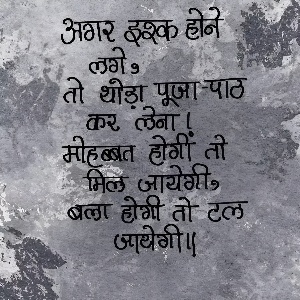 अगर इश्क होने
लगे,
तो थोड़ा पूजा-पाठ
कर लेना!
मोहब्बत होगी तो
मिल जायेगी,
बला होगी तो टल
जायेगी॥